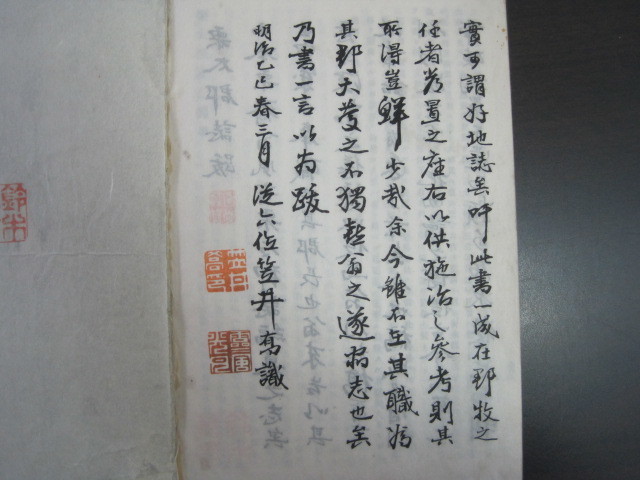 實可謂好地誌矣吁此書一成在郡牧之
任者常置之座右以供施治之參考則其
所得豈鮮少哉余今雖不在其職為
其郡大慶之不獨翁之遂志也矣
乃書一言以為跋
明治乙巳春三月 從六位笠井喬識